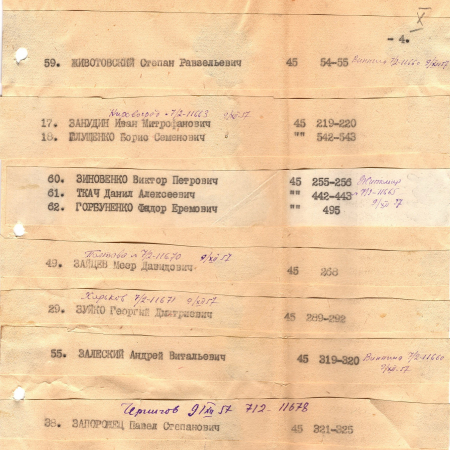 X
- 4.
59. ЖИВОТОВСКИЙ Степан Равзельевич 45 54-55 Винница 7/2-11660 9/XII 57
Кировоград 7/2-11663 9/XII 57
17. ЗАНУДИН Иван Митрофанович 45 219-220
18. ГЛУЩЕНКО Борис Семенович "" 542-543
60. ЗИНОВЕНКО Виктор Петрович 45 255-256 Житомир
61. ТКАЧ Данил Алексеевич "" 442-443 7/2-11665
62. ГОРБУНЕНКО Федор Еремович "" 495 9/XII 57
Полтава 7/2-11670 9/XII 57
49. ЗАЙЦЕВ Меер Давидович 45 268
Харьков 7/2-11671 9/XII 57
29. ЗУЙКО Георгий Дмитриевич 45 289-292
55. ЗАЛЕСКИЙ Андрей Витальевич 45 319-320 Винница 7/2-11660
9/XII-57
Чернигов 9/XII 57 7/2-11678
38. ЗАПОРОЖЕЦ Павел Степанович 45 321-325